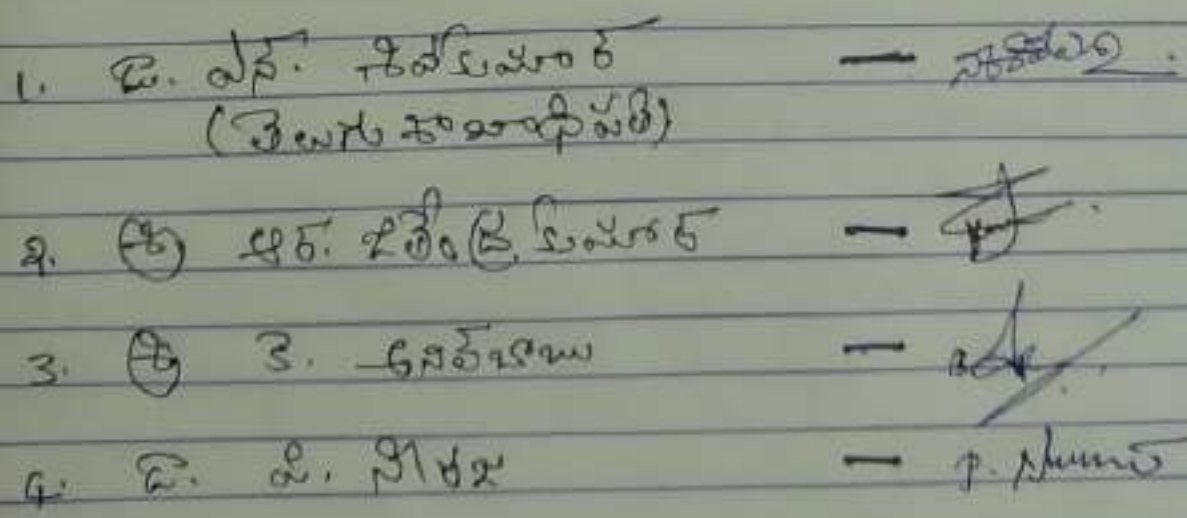 1. డా. ఎస్. శివకుమార్ —
(తెలుగు శాఖాధిపతి)
2. శ్రీ ఆర్. జితేంద్ర కుమార్ —
3. శ్రీ కె. అనిల్‌బాబు —
4. డా. పి. నీరజ — P.